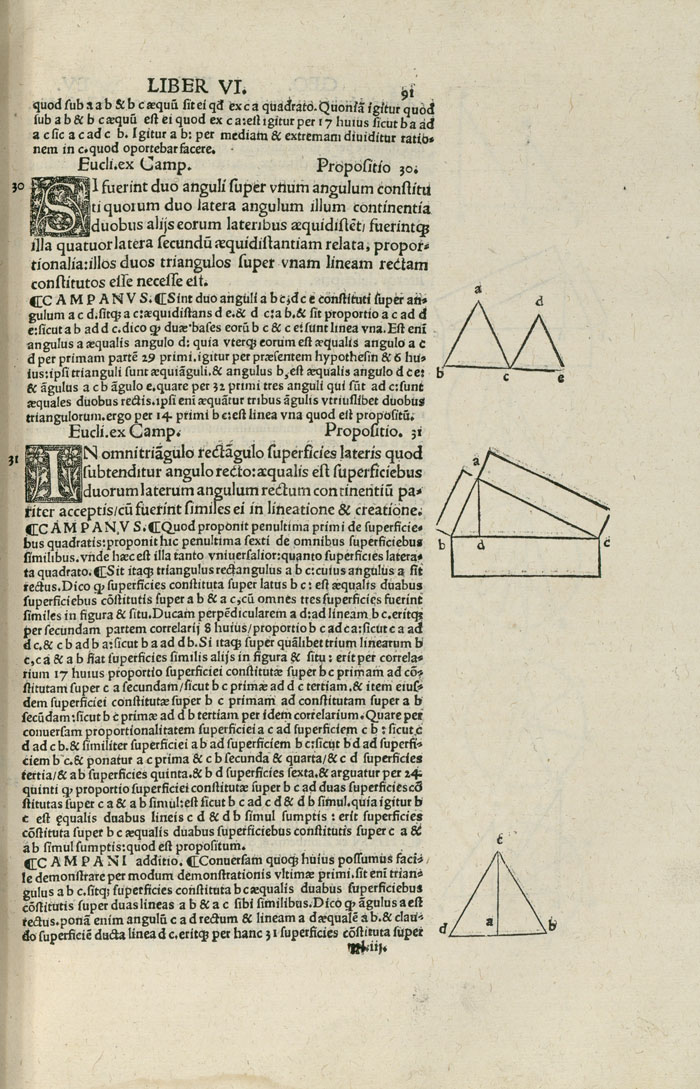 LIBER VI.
91
quod sub a a b & b c æquũ sit ei qđ ex c a quadrato. Quoniã igitur quod
sub a b & b c æquũ est ei quod ex c a: est igitur per 17 huius sicut b a ad
a c sic a c ad c b. Igitur a b: per mediam & extremam diuiditur ratio⸗
nem in c. quod oportebar facere.
Eucli. ex Camp. Propositio 30.
30
SI fuerint duo anguli super vnum angulum constitu
ti quorum duo latera angulum illum continentia
duobus alijs eorum lateribus æquidistẽt: fuerintq̃
illa quatuor latera secundũ æquidistantiam relata, propor⸗
tionalia: illos duos triangulos super vnam lineam rectam
constitutos esse necesse est.
¶CAMPANVS. ¶Sint duo anguli a b c, d c e constituti super an⸗
gulum a c d. sitq̃ a c: æquidistans d e. & d c: a b. & sit proportio a c ad d
e: sicut a b ad d c. dico q̃ duæ bases eorũ b c & c e: sunt linea vna. Est eni
angulus a æqualis angulo d: quia vterq; eorum est æqualis angulo a c
d per primam partẽ 29 primi. igitur per præsentem hypothesin & 6 hu⸗
ius: ipsi trianguli sunt æquiãguli. & angulus b, est æqualis angulo d c e:
& ãgulus a c b ãgulo e. quare per 32 primi tres anguli qui sũt ad c: sunt
æquales duobus rectis. ipsi eni æquãtur tribus ãgulis vtriuslibet duobus
triangulorum. ergo per 14 primi b c: est linea vna quod est propositũ.
Eucli. ex Camp. Propositio. 31
31
IN omni triãgulo rectãgulo superficies lateris quod
subtenditur angulo recto: æqualis est superficiebus
duorum laterum angulum rectum continentiũ pa⸗
riter acceptis: cũ fuerint similes ei in lineatione & creatione.
¶CAMPANVS. ¶Quod proponit penultima primi de superficie⸗
bus quadratis: proponit hic penultima sexti de omnibus superficiebus
similibus. vnde hæc est illa tanto vniuersalior: quanto superficies latera⸗
ta quadrato. ¶Sit itaq; triangulus rectangulus a b c: cuius angulus a sit
rectus. Dico q̃ superficies constituta super latus b c: est æqualis duabus
superficiebus cõstitutis super a b & a c, cũ omnes tres superficies fuerint
similes in figura & situ. Ducam perpẽdicularem a d: ad lineam b c. eritq̃
per secundam partem correlarij 8 huius/ proportio b c ad c a: sicut c a ad
d c. & c b ad b a: sicut b a ad d b. Si itaq; super quãlibet trium linearum b
c, c a & a b fiat superficies similis alijs in figura & situ: erit per correla⸗
rium 17 huius proportio superficiei constitutæ super b c primam ad cõ⸗
stitutam super c a secundam/ sicut b c primæ ad d c tertiam. & item eius⸗
dem superficiei constitutæ super b c primam ad constitutam super a b
secũdam: sicut b c primæ ad d b tertiam per idem correlarium. Quare per
conuersam proportionalitatem superficiei a c ad superficiem c b: sicut c
d ad c b. & similiter superficiei a b ad superficiem b c: sicut b d ad superfi⸗
ciem b c. & ponatur a c prima & c b secunda & quarta/ & c d superficies
tertia/ & a b superficies quinta. & b d superficies sexta. & arguatur per 24
quinti q̃ proportio superficiei constitutæ super b c ad duas superficies cõ
stitutas super c a & a b simul: est sicut b c ad c d & d b simul. quia igitur b
c est ęqualis duabus lineis c d & d b simul sumptis: erit superficies
cõstituta super b c æqualis duabus superficiebus constitutis super c a &
a b simul sumptis: quod est propositum.
¶CAMPANI additio. ¶Conuersam quoq; huius possumus faci⸗
le demonstrare per modum demonstrationis vltimæ primi. sit eni trian⸗
gulus a b c. sitq; superficies constituta b c æqualis duabus superficiebus
cõstitutis super duas lineas a b & a c sibi similibus. Dico q̃ ãgulus a est
rectus. ponã enim angulũ c a d rectum & lineam a d æqualẽ a b. & clau⸗
do superficiẽ ducta linea d c. eritq̃ per hanc 31 superficies cõstituta super
a
d
b
c
e
a
b
d
c
c
d
a
b